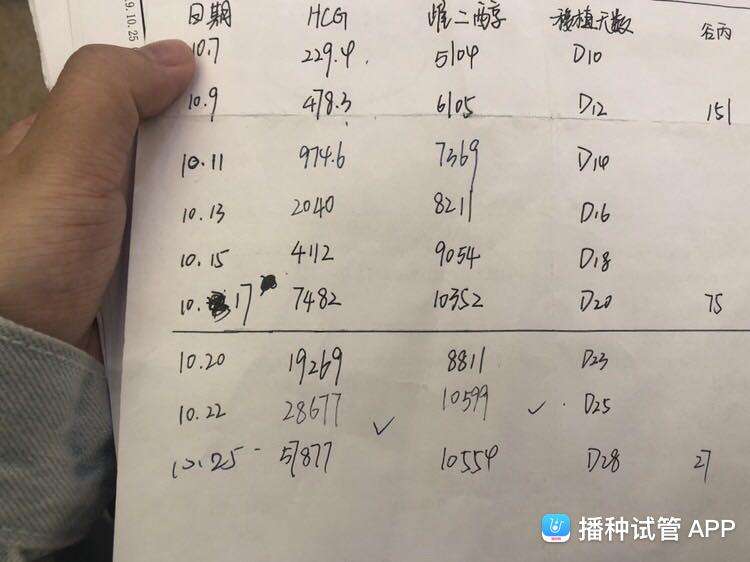 9.10.25
日期 HCG 雌二醇 移植天数 谷丙
10.7 229.4 5104 D10
10.9 478.3 6105 D12 151
10.11 974.6 7369 D14
10.13 2040 8211 D16
10.15 4112 9054 D18
10.17 7482 10352 D20 75
10.20 19269 8811 D23
10.22 28677 ✓ 10599 ✓ D25
10.25 57877 10554 D28 27
播种试管 APP